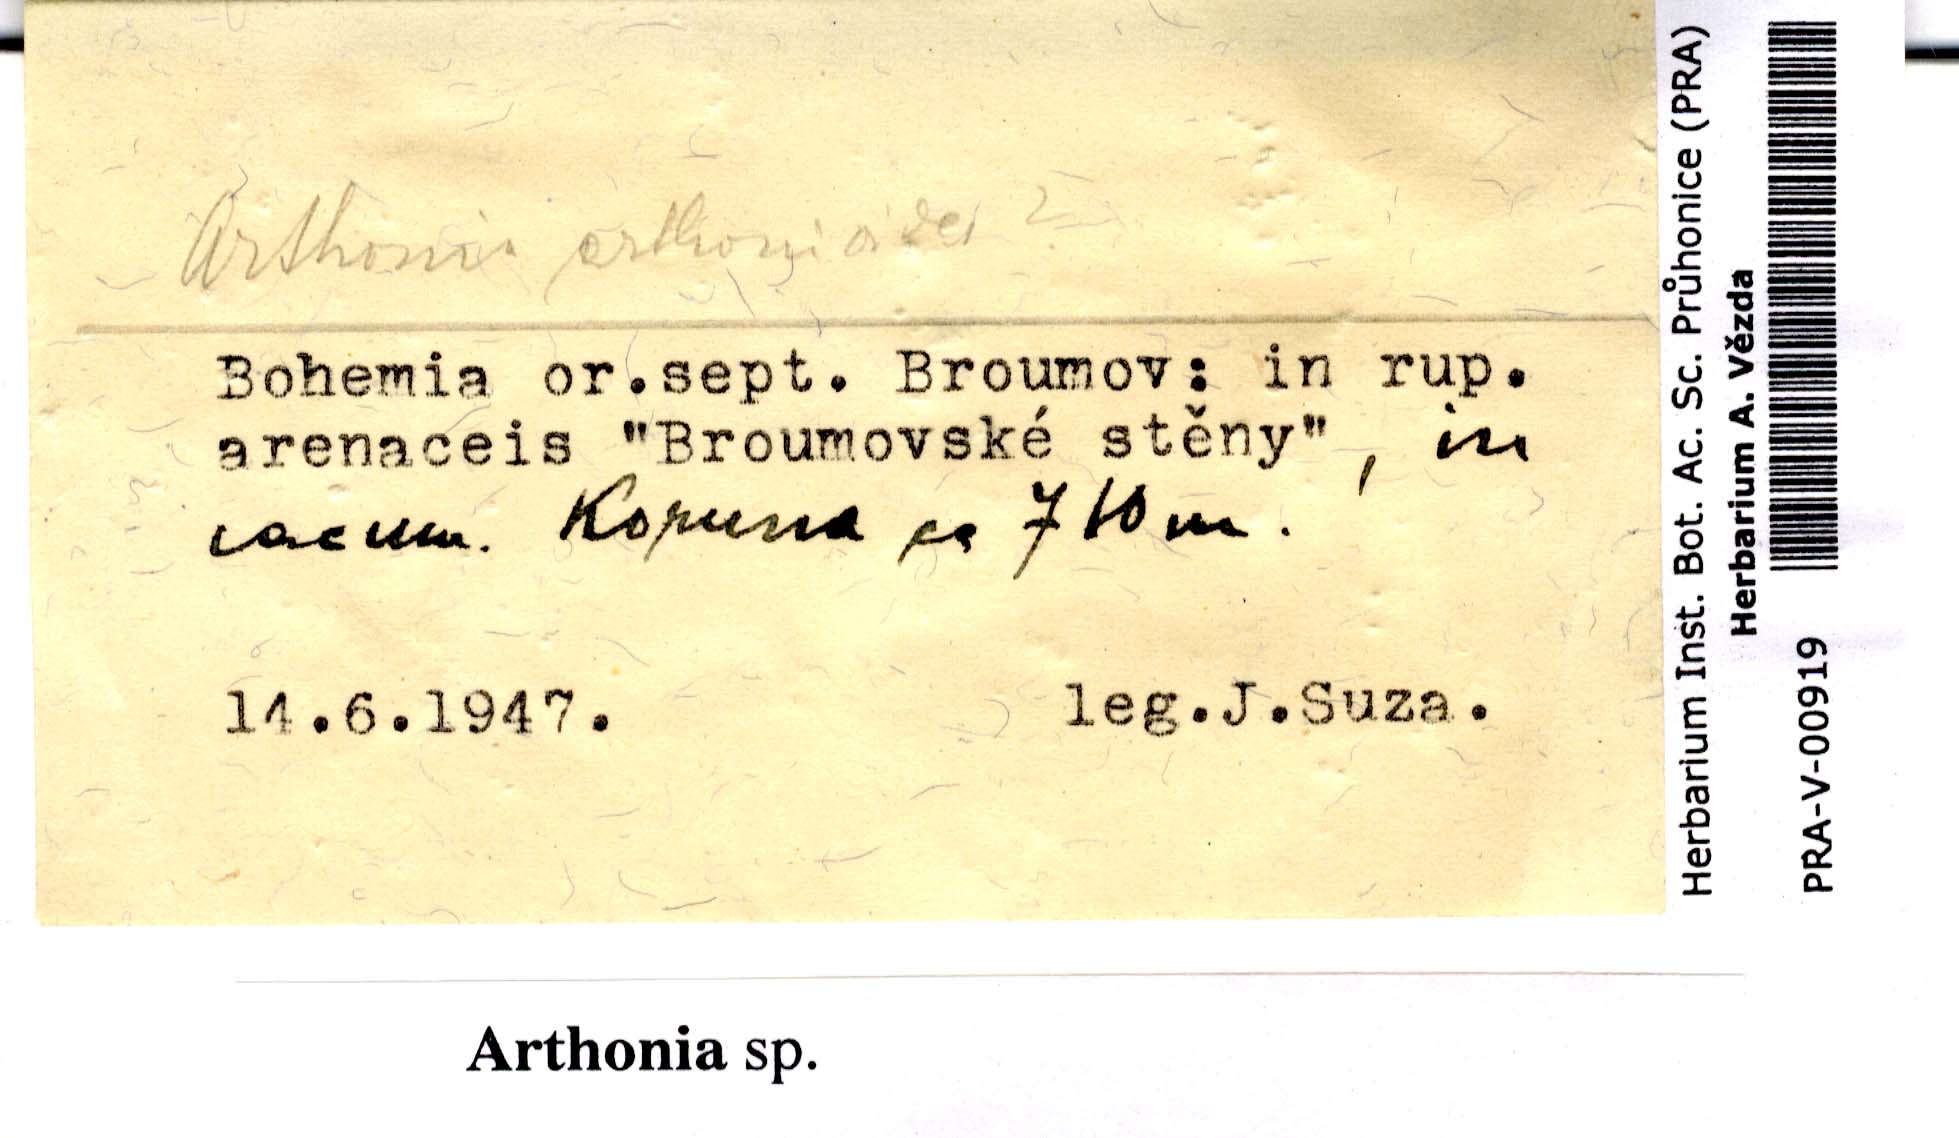 Arthonia arthonioides ?
Bohemia or.sept. Broumov: in rup.
arenaceis "Broumovské stěny", in
cacum. Koruna ca 710 m.
14.6.1947.
leg.J.Suza.
Herbarium Inst. Bot. Ac. Sc. Průhonice (PRA)
Herbarium A. Vězda
PRA-V-00919
Arthonia sp.